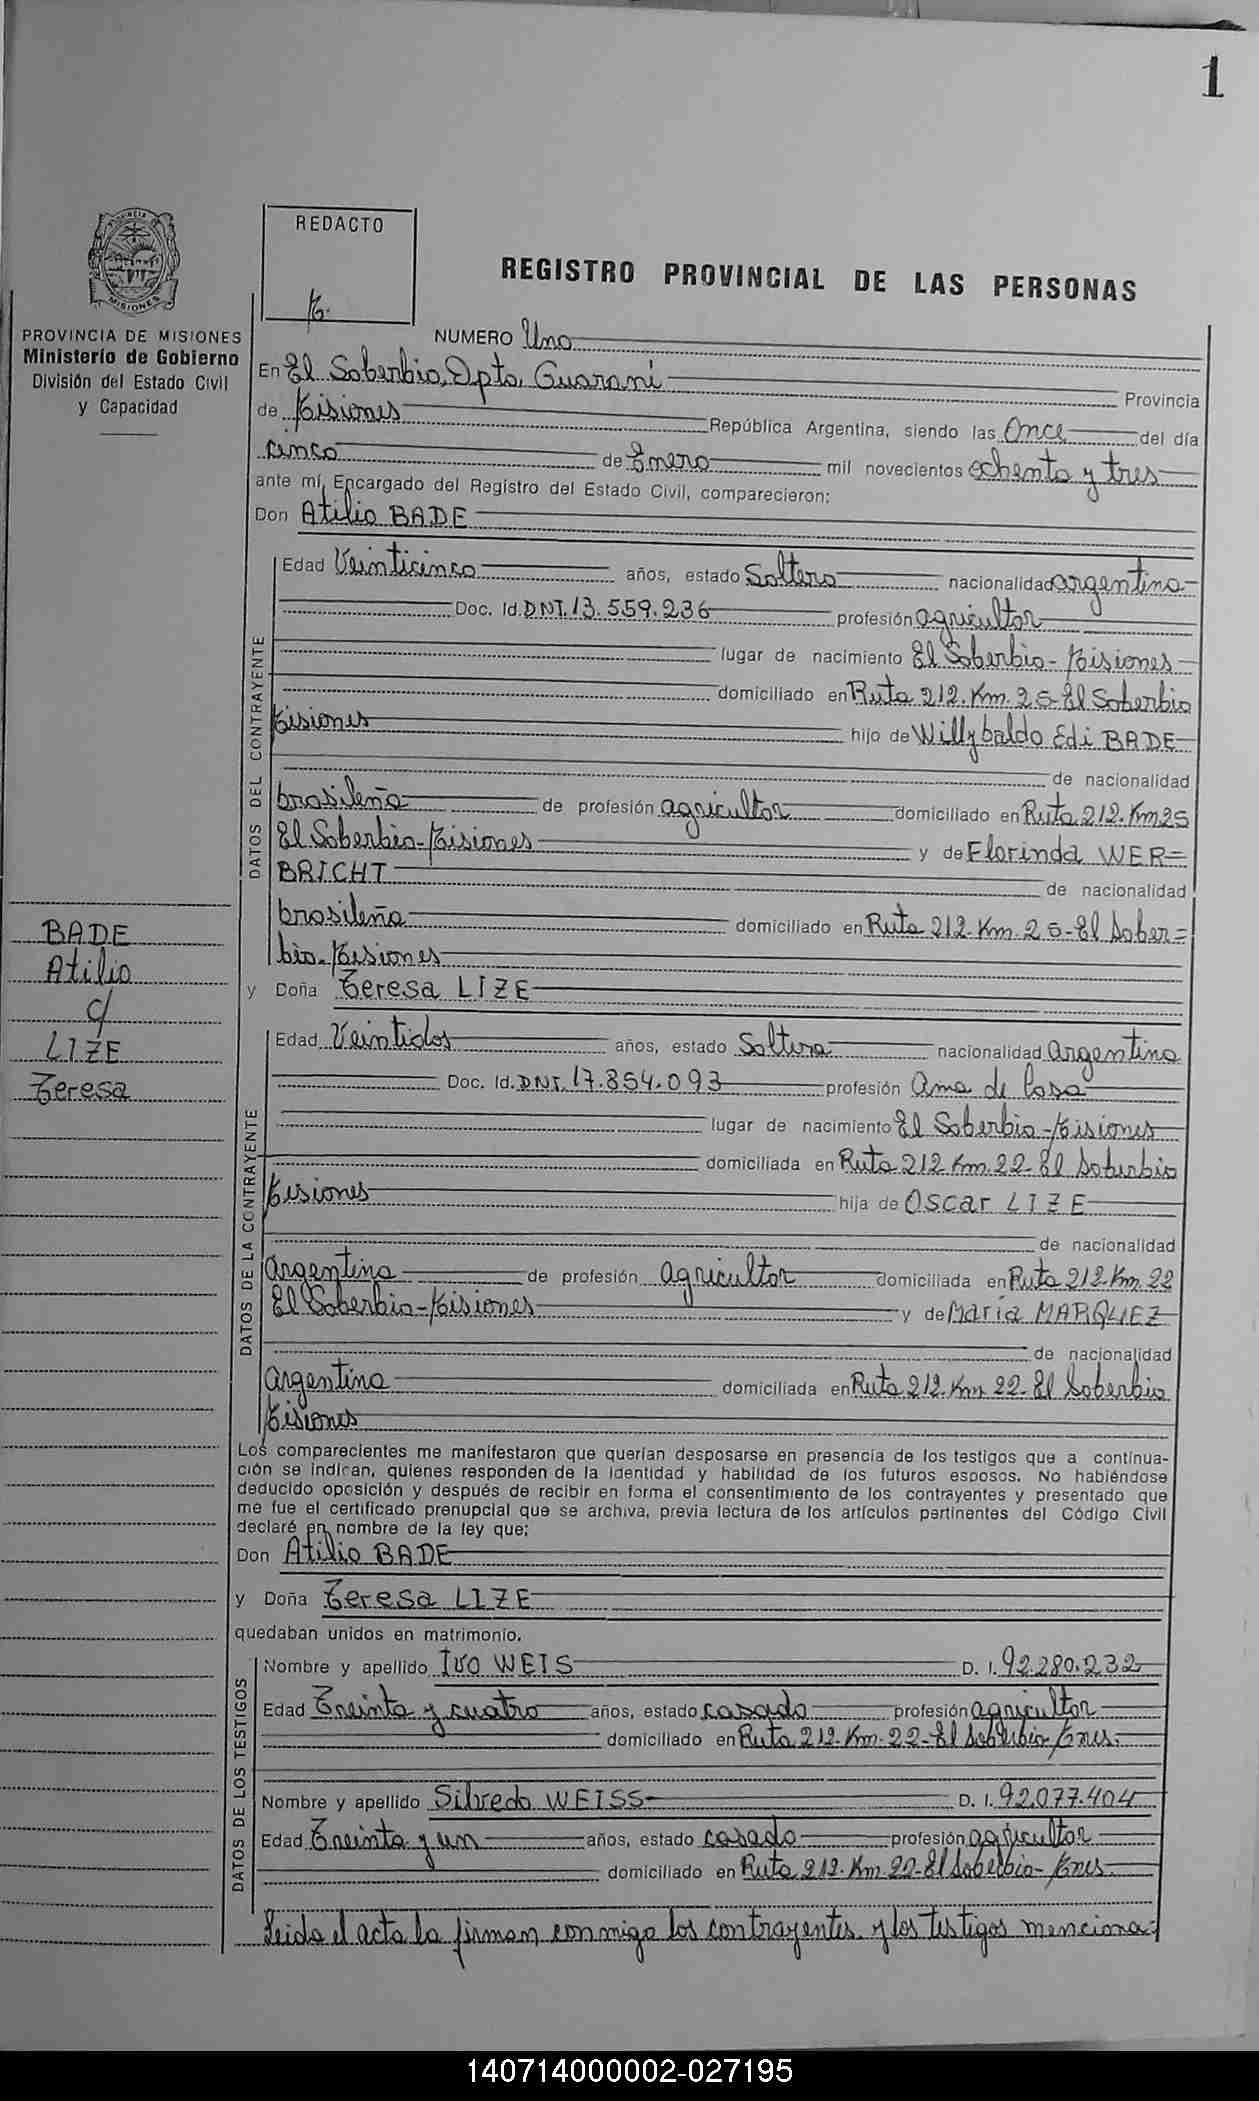 1
REDACTO
REGISTRO PROVINCIAL DE LAS PERSONAS
PROVINCIA DE MISIONES
Ministerio de Gobierno
División del Estado Civil
y Capacidad
NUMERO Uno
En El Soberbio, Dpto. Guaraní Provincia
de Misiones República Argentina, siendo las Once del día
cinco de Enero mil novecientos ochenta y tres
ante mí, Encargado del Registro del Estado Civil, comparecieron:
Don Atilio BADE
DATOS DEL CONTRAYENTE
Edad Veinticinco años, estado Soltero nacionalidad argentina
Doc. Id. DNI. 13.559.236 profesión agricultor
lugar de nacimiento El Soberbio - Misiones
domiciliado en Ruta 212. Km. 25 - El Soberbio
Misiones hijo de Willybaldo Edi BADE
de nacionalidad
brasileña de profesión agricultor domiciliado en Ruta 212. Km 25
El Soberbio - Misiones y de Florinda WER=
BRICHT de nacionalidad
brasileña domiciliado en Ruta 212. Km. 25 - El Sober=
bio - Misiones
BADE
Atilio
c/
LIZE
Teresa
y Doña Teresa LIZE
DATOS DE LA CONTRAYENTE
Edad Veintidos años, estado Soltera nacionalidad Argentina
Doc. Id. DNI. 17.854.093 profesión Ama de Casa
lugar de nacimiento El Soberbio - Misiones
domiciliada en Ruta 212 Km. 22 - El Soberbio
Misiones hija de Oscar LIZE
de nacionalidad
Argentina de profesión agricultor domiciliada en Ruta 212 Km. 22
El Soberbio - Misiones y de María MARQUEZ
de nacionalidad
Argentina domiciliada en Ruta 212. Km 22 - El Soberbio
Misiones
Los comparecientes me manifestaron que querían desposarse en presencia de los testigos que a continua-
ción se indican, quienes responden de la identidad y habilidad de los futuros esposos. No habiéndose
deducido oposición y después de recibir en forma el consentimiento de los contrayentes y presentado que
me fue el certificado prenupcial que se archiva, previa lectura de los artículos pertinentes del Código Civil
declaré en nombre de la ley que:
Don Atilio BADE
y Doña Teresa LIZE
quedaban unidos en matrimonio.
DATOS DE LOS TESTIGOS
Nombre y apellido Ivo WEIS D. I. 92.280.232
Edad Treinta y cuatro años, estado casado profesión agricultor
domiciliado en Ruta 212. Km. 22 - El Soberbio - Mnes.
Nombre y apellido Silvedo WEISS D. I. 92.077.404
Edad Treinta y un años, estado casado profesión agricultor
domiciliado en Ruta 212. Km. 22 - El Soberbio - Mnes.
Leida el acta la firman conmigo los contrayentes y los testigos menciona=
140714000002-027195